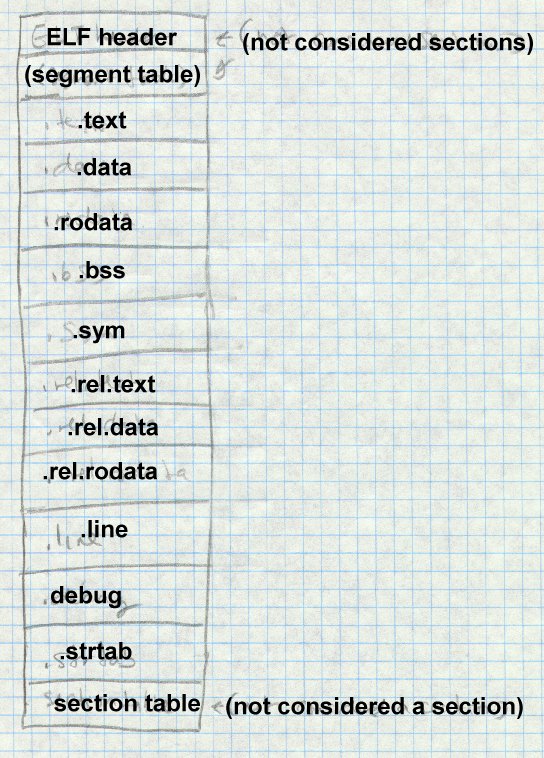 ELF header
(not considered sections)
(segment table)
.text
.data
.rodata
.bss
.sym
.rel.text
.rel.data
.rel.rodata
.line
.debug
.strtab
section table
(not considered a section)